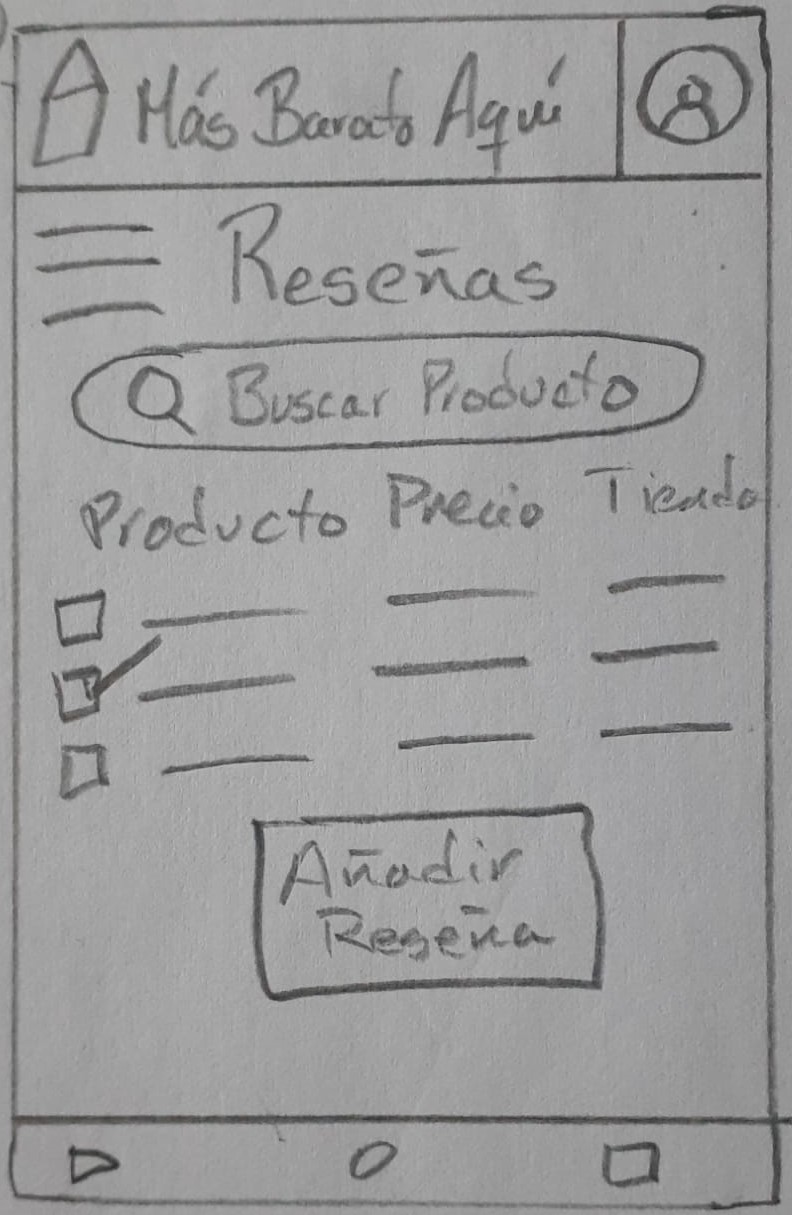 Más Barato Aquí
Reseñas
Buscar Producto
Producto Precio Tienda
Añadir
Reseña